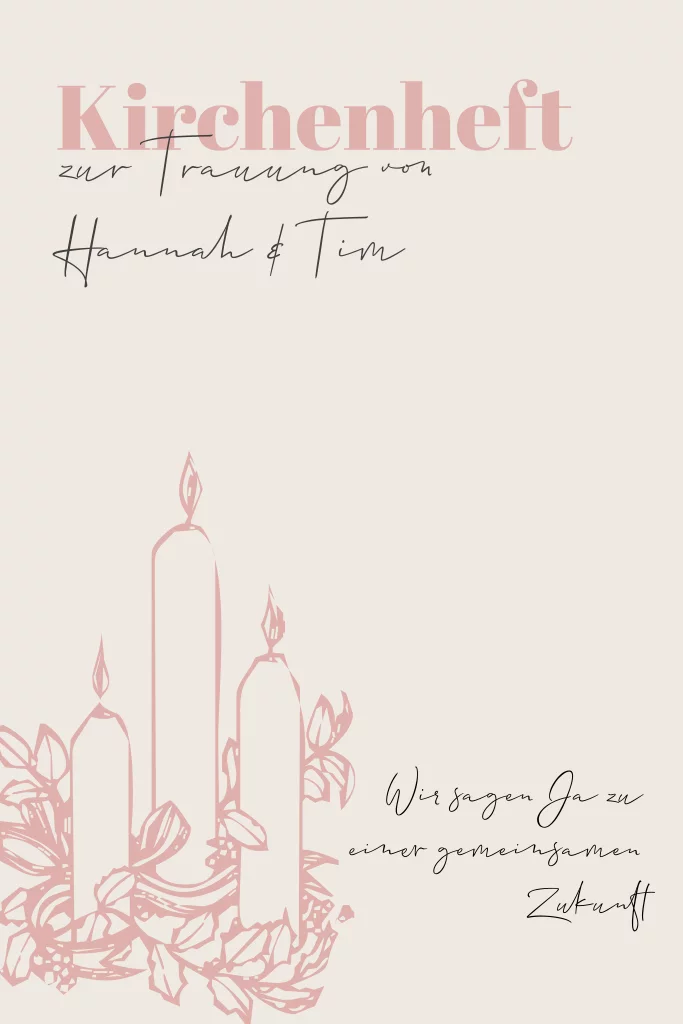 Kirchenheft
zur Trauung von
Hannah & Tim
Wir sagen Ja zu
einer gemeinsamen
Zukunft